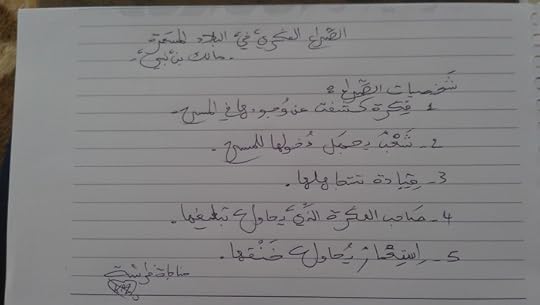 الصِّراع الفكري في البلاد المستعمرة
- مالك بن نبي -
شَخصيات الصِّراع :
1 فِكرة كشفت عن وُجودها في المسرح -
2 - شَعْبٌ يجهل دُخولها للمسرح -
3 - قِيادة تتجاهلها .
4 - صَاحب الفكرة الذِّي يحاول تبليغها .
5 - اِستِعْمارٌ يُحاول خَنْقها .